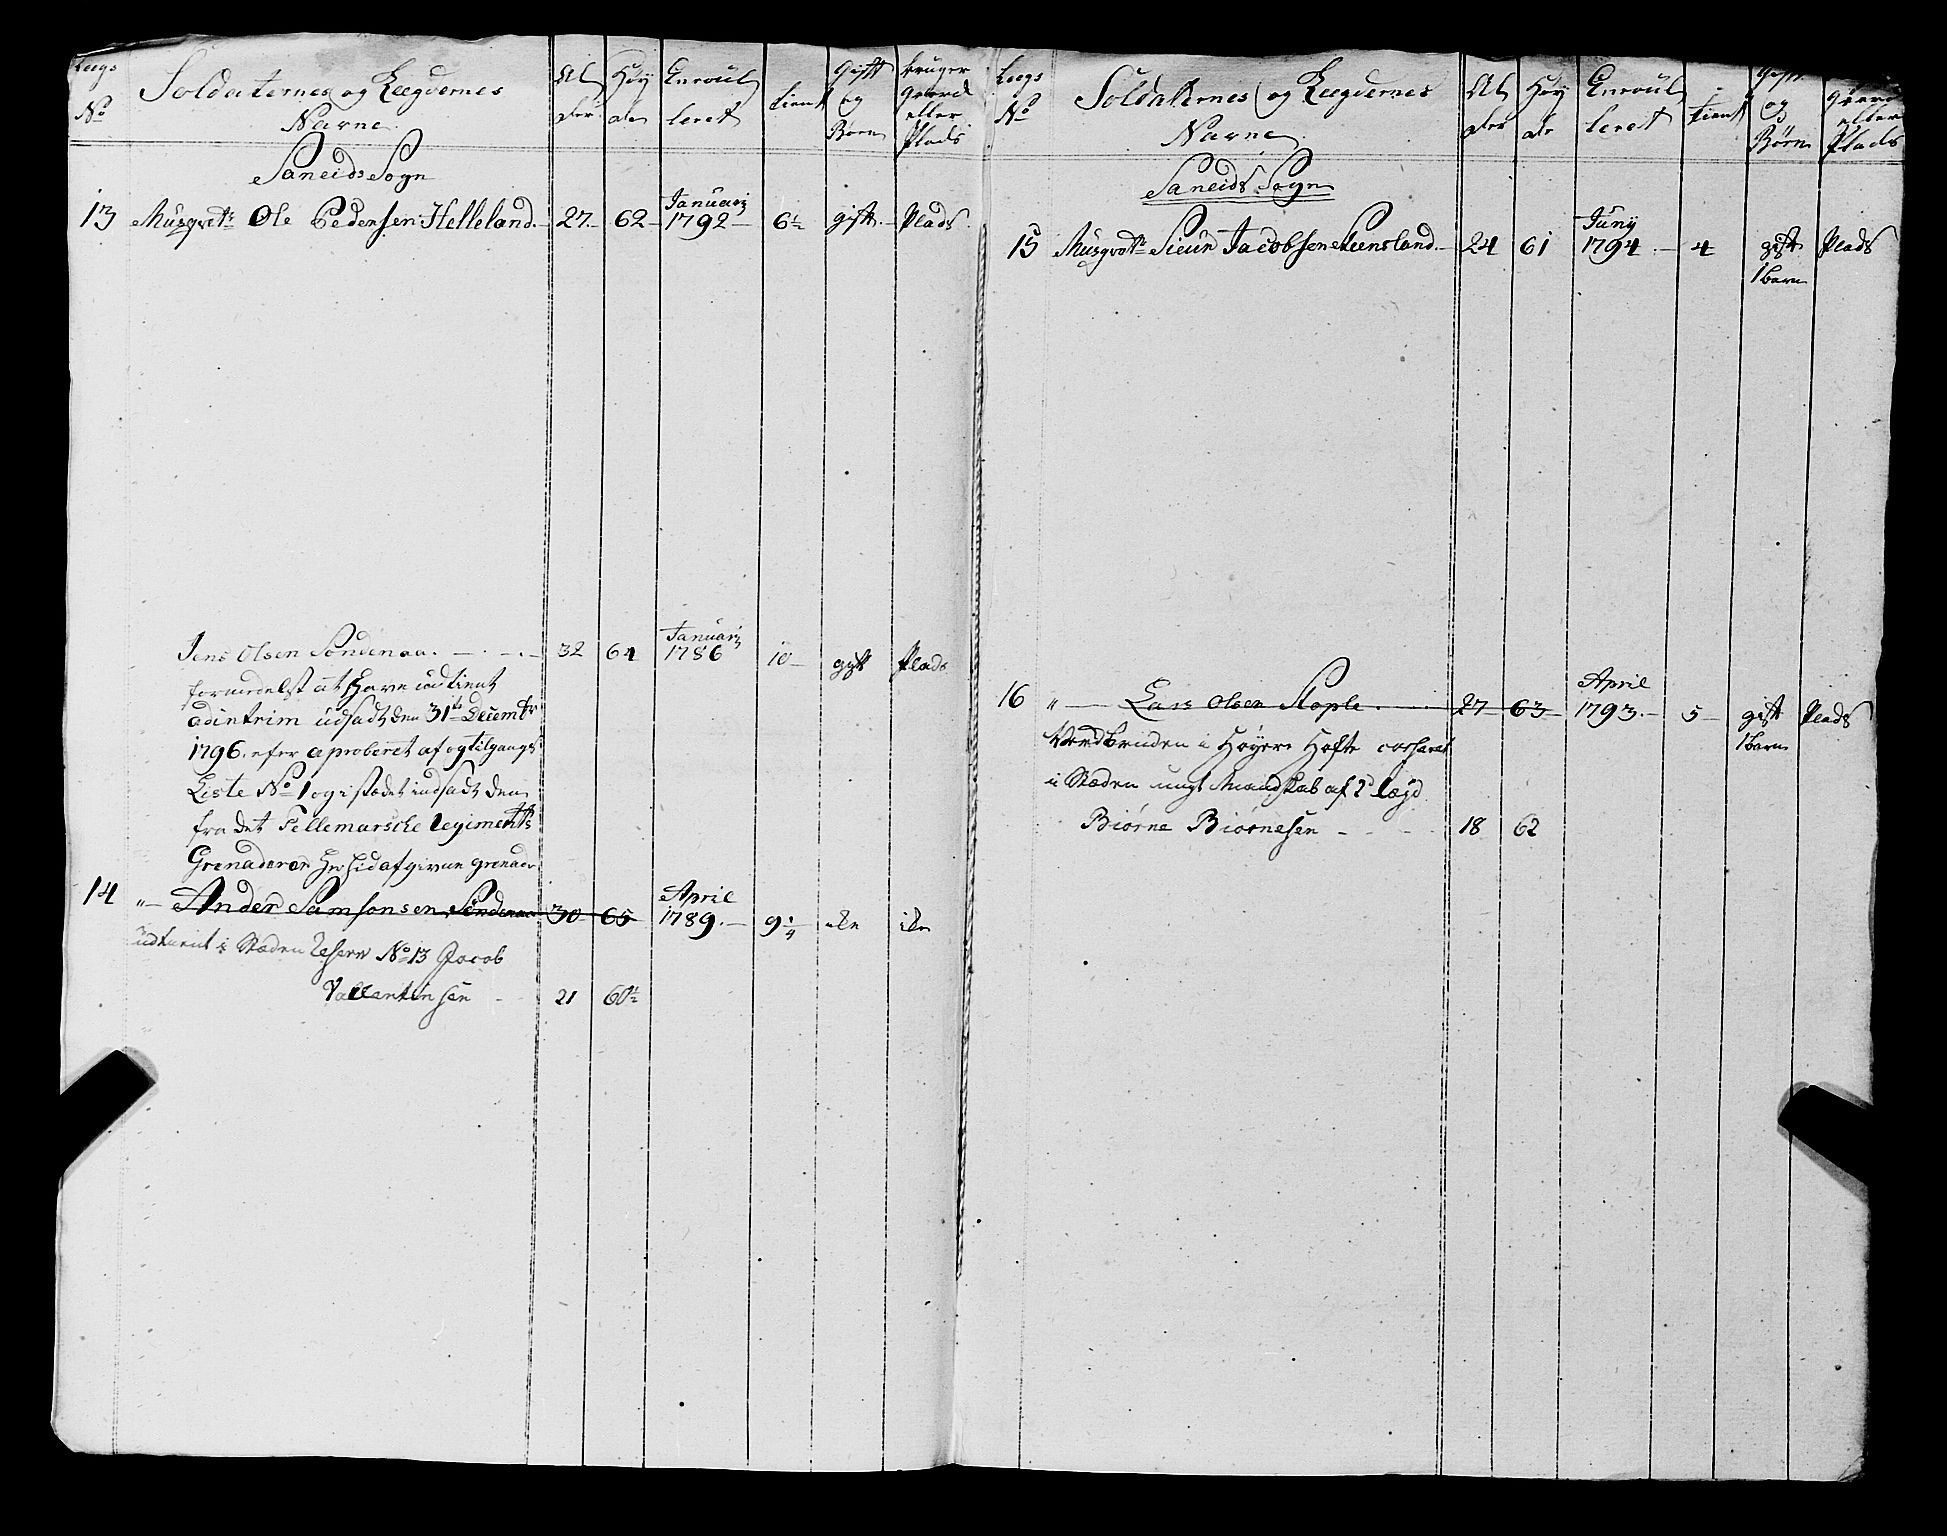 Leegs
No
Soldaternes og Leegdernes
Navne
Al
der
Høy
de
Enroul
leret
tient
Gift
og
Børn
bruger
Gaard
eller
Plads
Saneids Sogn
13 Musqvetr Ole Pedersen Helleland 27 62 Januarij 1792 6½ gift Plads
Jens Olsen Söndenaa 32 64 Januarij 1786 10 gift Plads
formedelst at have udtient
adintrim udsadt den 31te Decembr
1796. efter aproberet af og tilgangs
Liste No 1 og i stædet indsadt den
fra det Tellemarsche Regiments
Grenaderer afgivne Grenader
14 " Anders Samsonsen Söndenaa 30 65 April 1789 9¼ do do
udtient i Stæden No 13 Jacob
Vallentinsen 21 60½
Leegs
No
Soldaternes og Leegdernes
Navne
Al
der
Høy
de
Enroul
leret
tient
Gift
og
Børn
Gaard
eller
Plads
Saneids Sogn
15 Musqvetr Sieur Jacobsen Steensland 24 61 Juny 1794 4 gift Plads
1 barn
16 " Lars Olsen Stople 27 63 April 1793 5 gift Plads
1 barn
i Høyere Hofte
i Stæden ungt Mandskab af 2d Lægd
Biørne Biørnesen 18 62